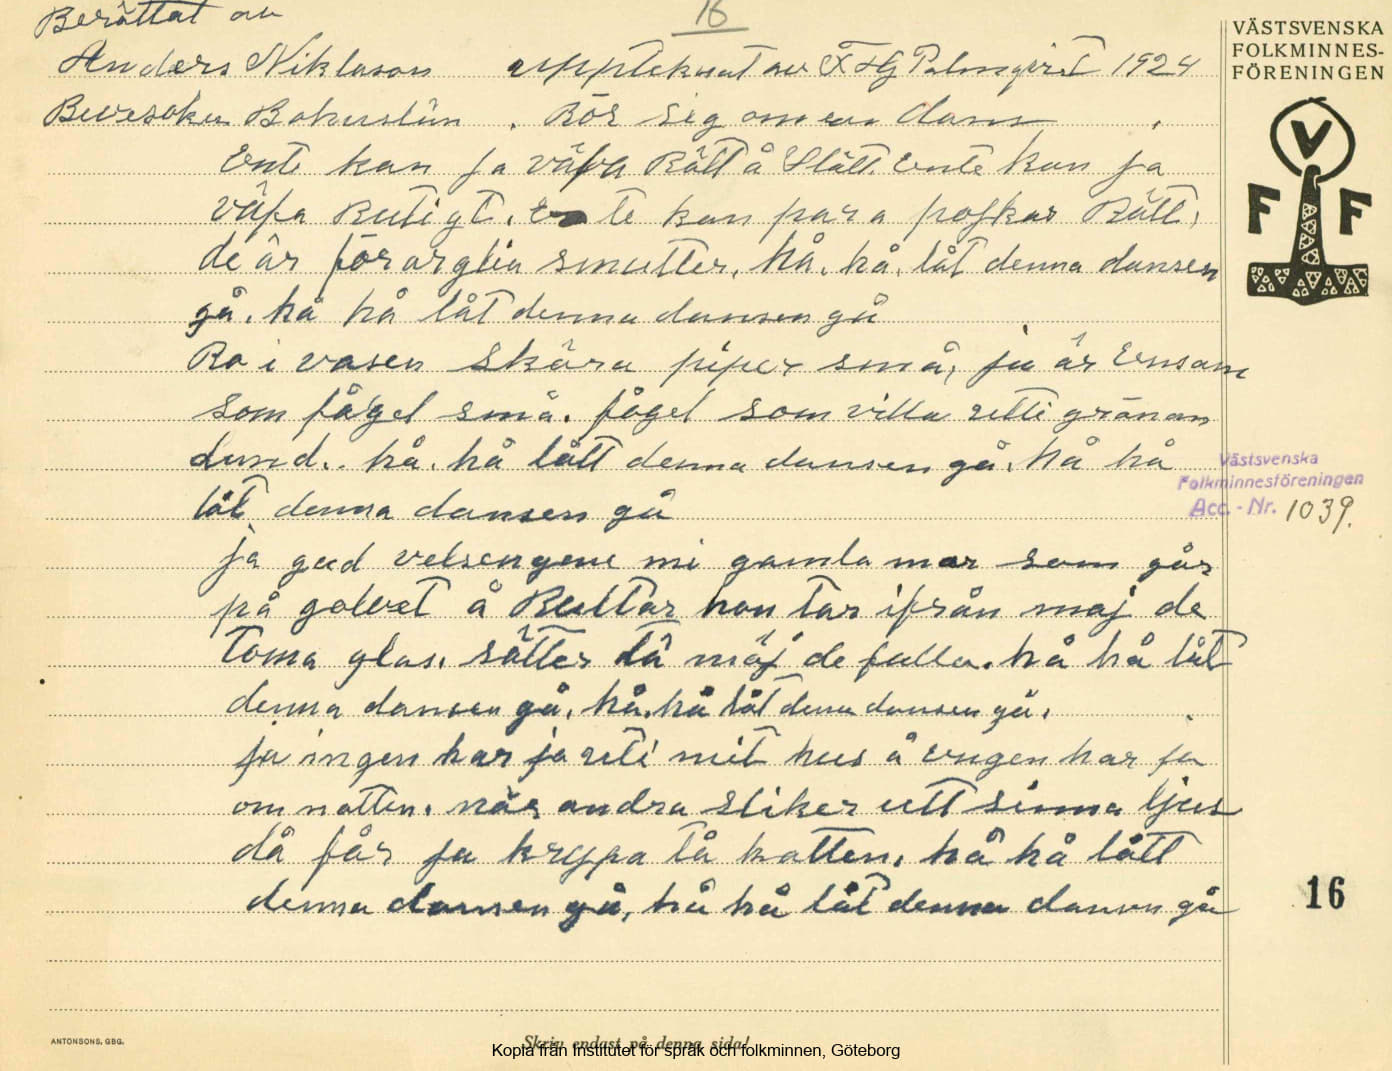 16
Berättat av
Anders Niklason uppteknat av F Hj Palmqvist 1924
Bohuslän. Rör sig om en dans.
Ente kan ja väfva Rätt å Slätt. Ente kan ja
väfa Rutigt. Ente kan para pojkar Rätt,
de är för arglia smutter. hå. hå. låt denna dansen
gå. hå hå låt denna dansen gå
Ro i vasen Skära piper små, ja är Ensam
som fågel små. fågel som villa utti grönan
lund.. hå. hå lått denna dansen gå. hå hå
låt denna dansen gå
ja gud velsengene mi gamla mor som går
på golvet å Rultar hon tar ifrån maj de
toma glas. sätter tå mäj de fulla. hå hå låt
denna dansen gå. hå. hå låt denna dansen gå.
ja ingen har ja uti mit hus å engen har ja
om natten. när andra sliker utt sinna ljus
då får ja krypa tå katten. hå hå lått
denna dansen gå. hå hå låt denna dansen gå
VÄSTSVENSKA
FOLKMINNES-
FÖRENINGEN
V
F F
Västsvenska
Folkminnesföreningen
Acc.-Nr. 1039.
16
ANTONSONS, GBG.
Skriv endast på denna sida!
Kopia från Institutet för språk och folkminnen, Göteborg